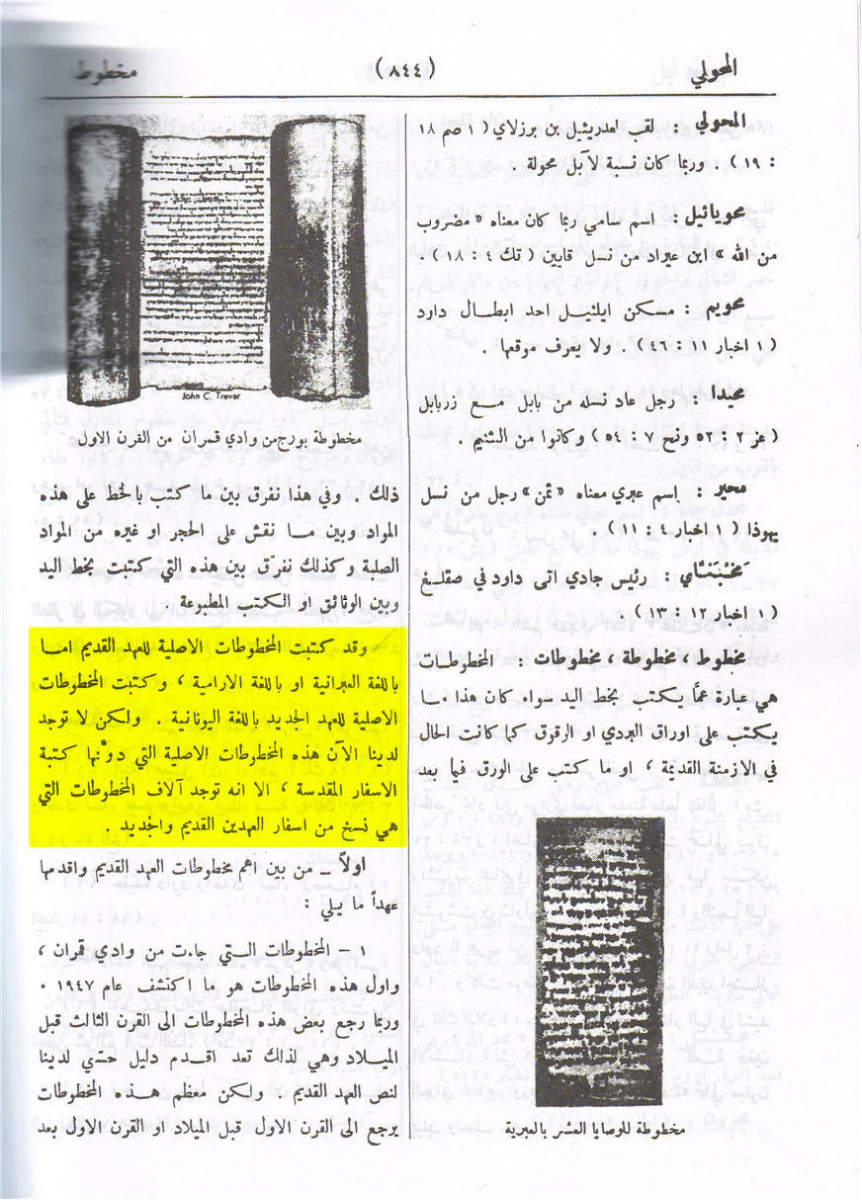 المحولي
( ٨٤٤ )
مخطوط
المحولي : لقب لعدريئيل بن برزلاي ( ١ صم ١٨
: ١٩ ) . وربما كان نسبة لآبل محولة .
محويائيل : اسم سامي ربما كان معناه « مضروب
من الله » ابن عيراد من نسل قايين ( تك ٤ : ١٨ ) .
محويم : مسكن ايليئيل احد ابطال داود
( ١ اخبار ١١ : ٤٦ ) . ولا يعرف موقعها .
محيدا : رجل عاد نسله من بابل مع زربابل
( عز ٢ : ٥٢ ونح ٧ : ٥٤ ) وكانوا من النثنيم .
محير : إسم عبري معناه « ثمن » رجل من نسل
يهوذا ( ١ اخبار ٤ : ١١ ) .
مخبنّاي : رئيس جادي اتى داود في صقلغ
( ١ اخبار ١٢ : ١٣ ) .
مخطوط ، مخطوطة ، مخطوطات : المخطوطات
هي عبارة عمّا يكتب بخط اليد سواء كان هذا ما
يكتب على اوراق البردي او الرقوق كما كانت الحال
في الازمنة القديمة ، او ما كتب على الورق فيما بعد
مخطوطة للوصايا العشر بالعبرية
John C. Trever
مخطوطة بورج من وادي قمران من القرن الاول
ذلك . وفي هذا نفرق بين ما كتب بالخط على هذه
المواد وبين ما نقش على الحجر او غيره من المواد
الصلبة وكذلك نفرّق بين هذه التي كتبت بخط اليد
وبين الوثائق او الكتب المطبوعة .
وقد كتبت المخطوطات الاصلية للعهد القديم اما
باللغة العبرانية او باللغة الارامية ، وكتبت المخطوطات
الاصلية للعهد الجديد باللغة اليونانية . ولكن لا توجد
لدينا الآن هذه المخطوطات الاصلية التي دوّنها كتبة
الاسفار المقدسة ، الا انه توجد آلاف المخطوطات التي
هي نسخ من اسفار العهدين القديم والجديد .
اولاً – من بين اهم مخطوطات العهد القديم واقدمها
عهداً ما يلي :
١ – المخطوطات التي جاءت من وادي قمران ،
واول هذه المخطوطات هو ما اكتشف عام ١٩٤٧ .
وربما رجع بعض هذه المخطوطات الى القرن الثالث قبل
الميلاد وهي لذلك تعد اقدم دليل حسّي لدينا
لنص العهد القديم . ولكن معظم هذه المخطوطات
يرجع الى القرن الاول قبل الميلاد او القرن الاول بعد